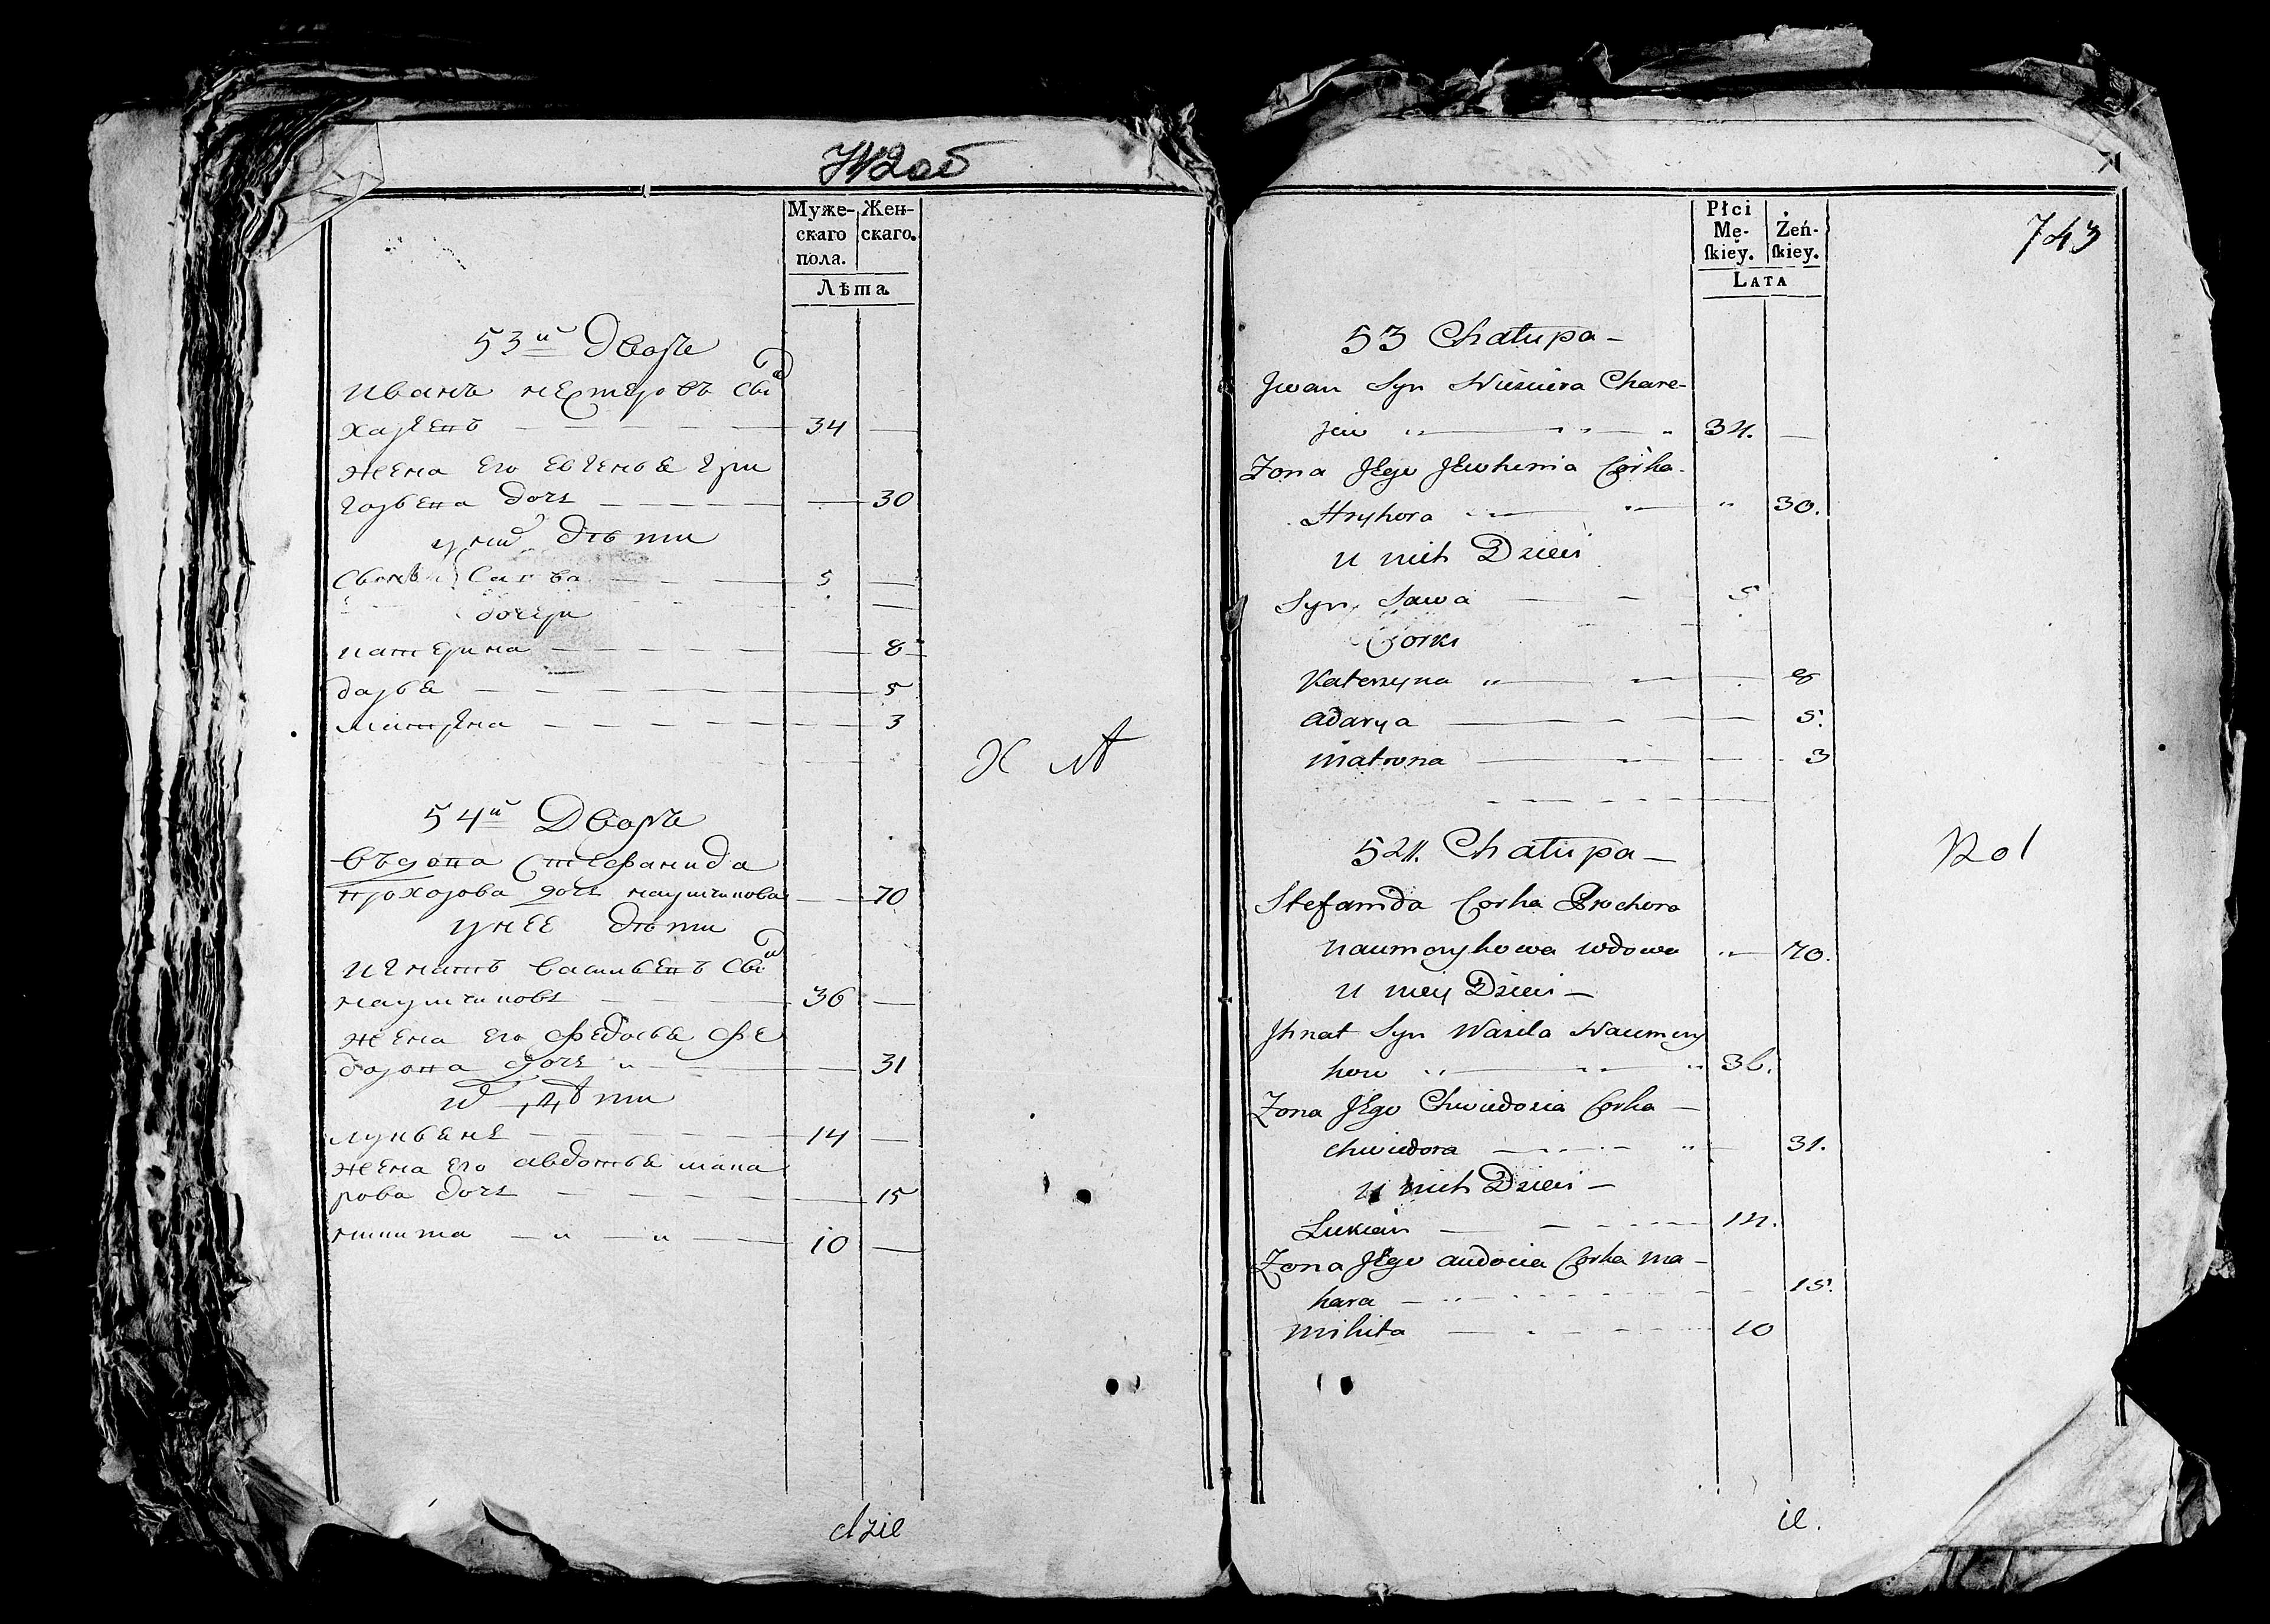 Муже-
скаго
пола.
Жен-
скаго.
Лѣта
53й Дворъ
Иванъ Нестеровъ Сынъ
34
жена его Евгенья Гри
горьева дочь 30
у них дѣти
Савва 5
дочери
катерина 8
дарья 5
Матрена 3
54й Дворъ
Въдова Стефанида
прохорова дочь наумчикова 70
у нее дѣти
Игнатъ васильевъ Сынъ
наумчиковъ 36
жена его Федосья Фе
дорова дочь 31
дѣти
лукьянъ 14
жена его авдотья мака
рова дочь 15
никита 10
dzie
71
743
Płci
Mę-
skiey.
Żeń-
skiey.
LATA
53 Chałupa
Jwan Syn Niściera Chare-
34.
Zona Jego Jewhenia Corka
Hryhora 30.
u nich Dzieci
Syn Sawa 5
Corki
Katerzyna 8
adarya 5.
matrona 3
54. Chałupa
Stefanida Corka Prochora
naumczykowa wdowa 70.
u niey Dzieci
Jhnat Syn Wasila Naumczy
kow 36.
Zona Jego Chwiedosia Corka
chwiedora 31.
u nich Dzieci
Lukian 14.
Zona Jego audocia Corka ma-
kara 15.
mikita 10
ie.